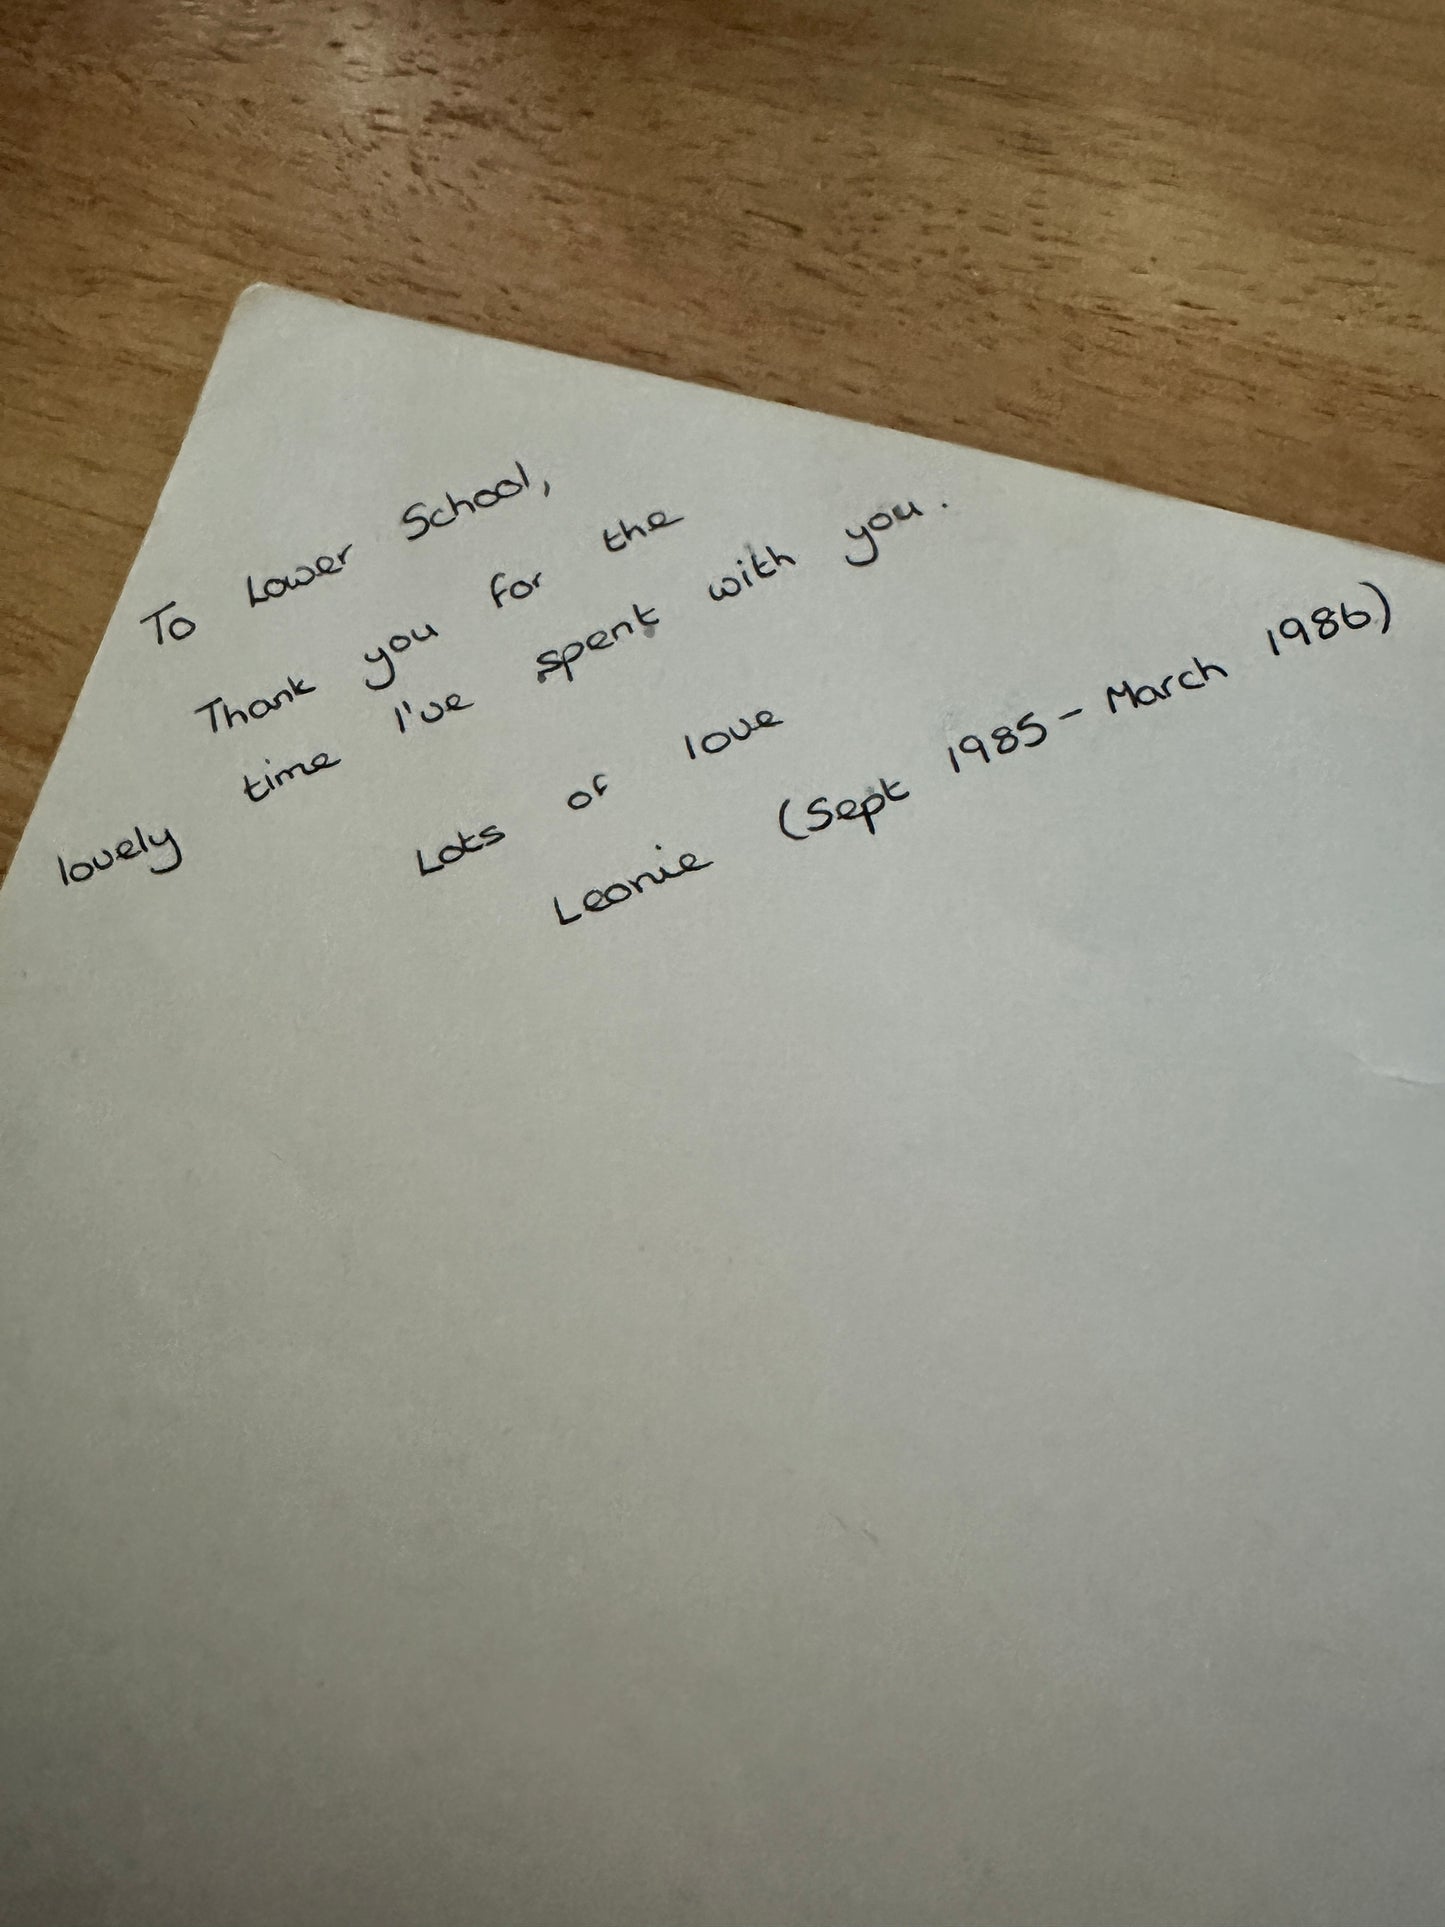 To Lower School,
Thank you for the
lovely time I've spent with you.
Lots of love
Leonie (Sept 1985 - March 1986)